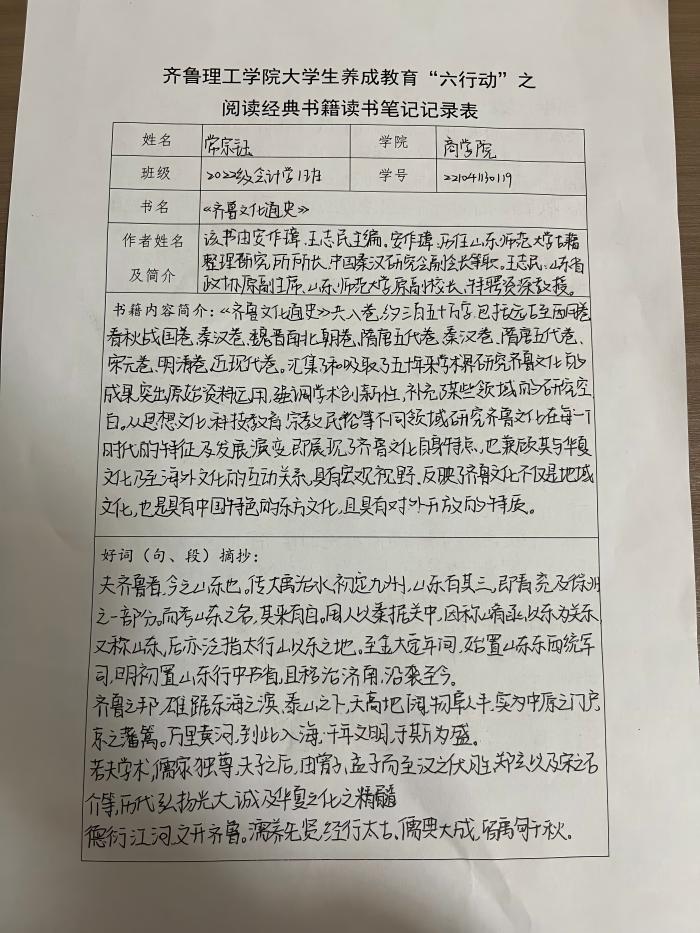 齐鲁理工学院大学生养成教育“六行动”之
阅读经典书籍读书笔记记录表
姓名 常宗钰 学院 商学院
班级 2022级会计学1班 学号 22104130119
书名 《齐鲁文化通史》
作者姓名及简介 该书由安作璋、王志民主编。安作璋、历任山东师范大学古籍
整理研究所所长、中国秦汉研究会副会长等职。王志民、山东省
政协原副主席、山东师范大学原副校长、特聘资深教授。
书籍内容简介:《齐鲁文化通史》共八卷,约三百五十万字,包括远古至西周卷
春秋战国卷、秦汉卷、魏晋南北朝卷、隋唐五代卷、秦汉卷、隋唐五代卷、
宋元卷、明清卷、近现代卷。汇集了和吸取了五十年来学术界研究齐鲁文化的
成果突出原始资料运用,强调学术创新性,补充了某些领域的研究空
白。从思想文化、科技教育、宗教民俗等不同领域研究齐鲁文化在每一个
时代的特征及发展演变,即展现了齐鲁文化自身特点,也兼顾其与华夏
文化乃至海外文化的互动关系,具有宏观视野、反映了齐鲁文化不仅是地域
文化,也是具有中国特色的东方文化,且具有对外开放的特质。
好词(句、段)摘抄:
夫齐鲁者,今之山东也。传大禹治水,初定九州,山东有其三,即青兖及徐州
之一部分。而考山东之名,其来有自。周人以秦据关中,因称崤函,以东为关东,
又称山东,后亦泛指太行山以东之地。至金大定年间,始置山东东西统军
司,明初置山东行中书省,且移治济南,沿袭至今。
齐鲁之邦,雄踞东海之滨、泰山之下,天高地阔,物阜人丰,实为中原之门户
京之藩篱。万里黄河,到此入海,千年文明,于斯为盛。
若夫学术,儒家独尊,夫子之后,由曾子、孟子而至汉之伏胜、郑玄以及宋之石
介等,历代弘扬光大,诚及华夏之化之精髓
德衍江河,文开齐鲁。濡养先贤,经行太古、儒典大成,